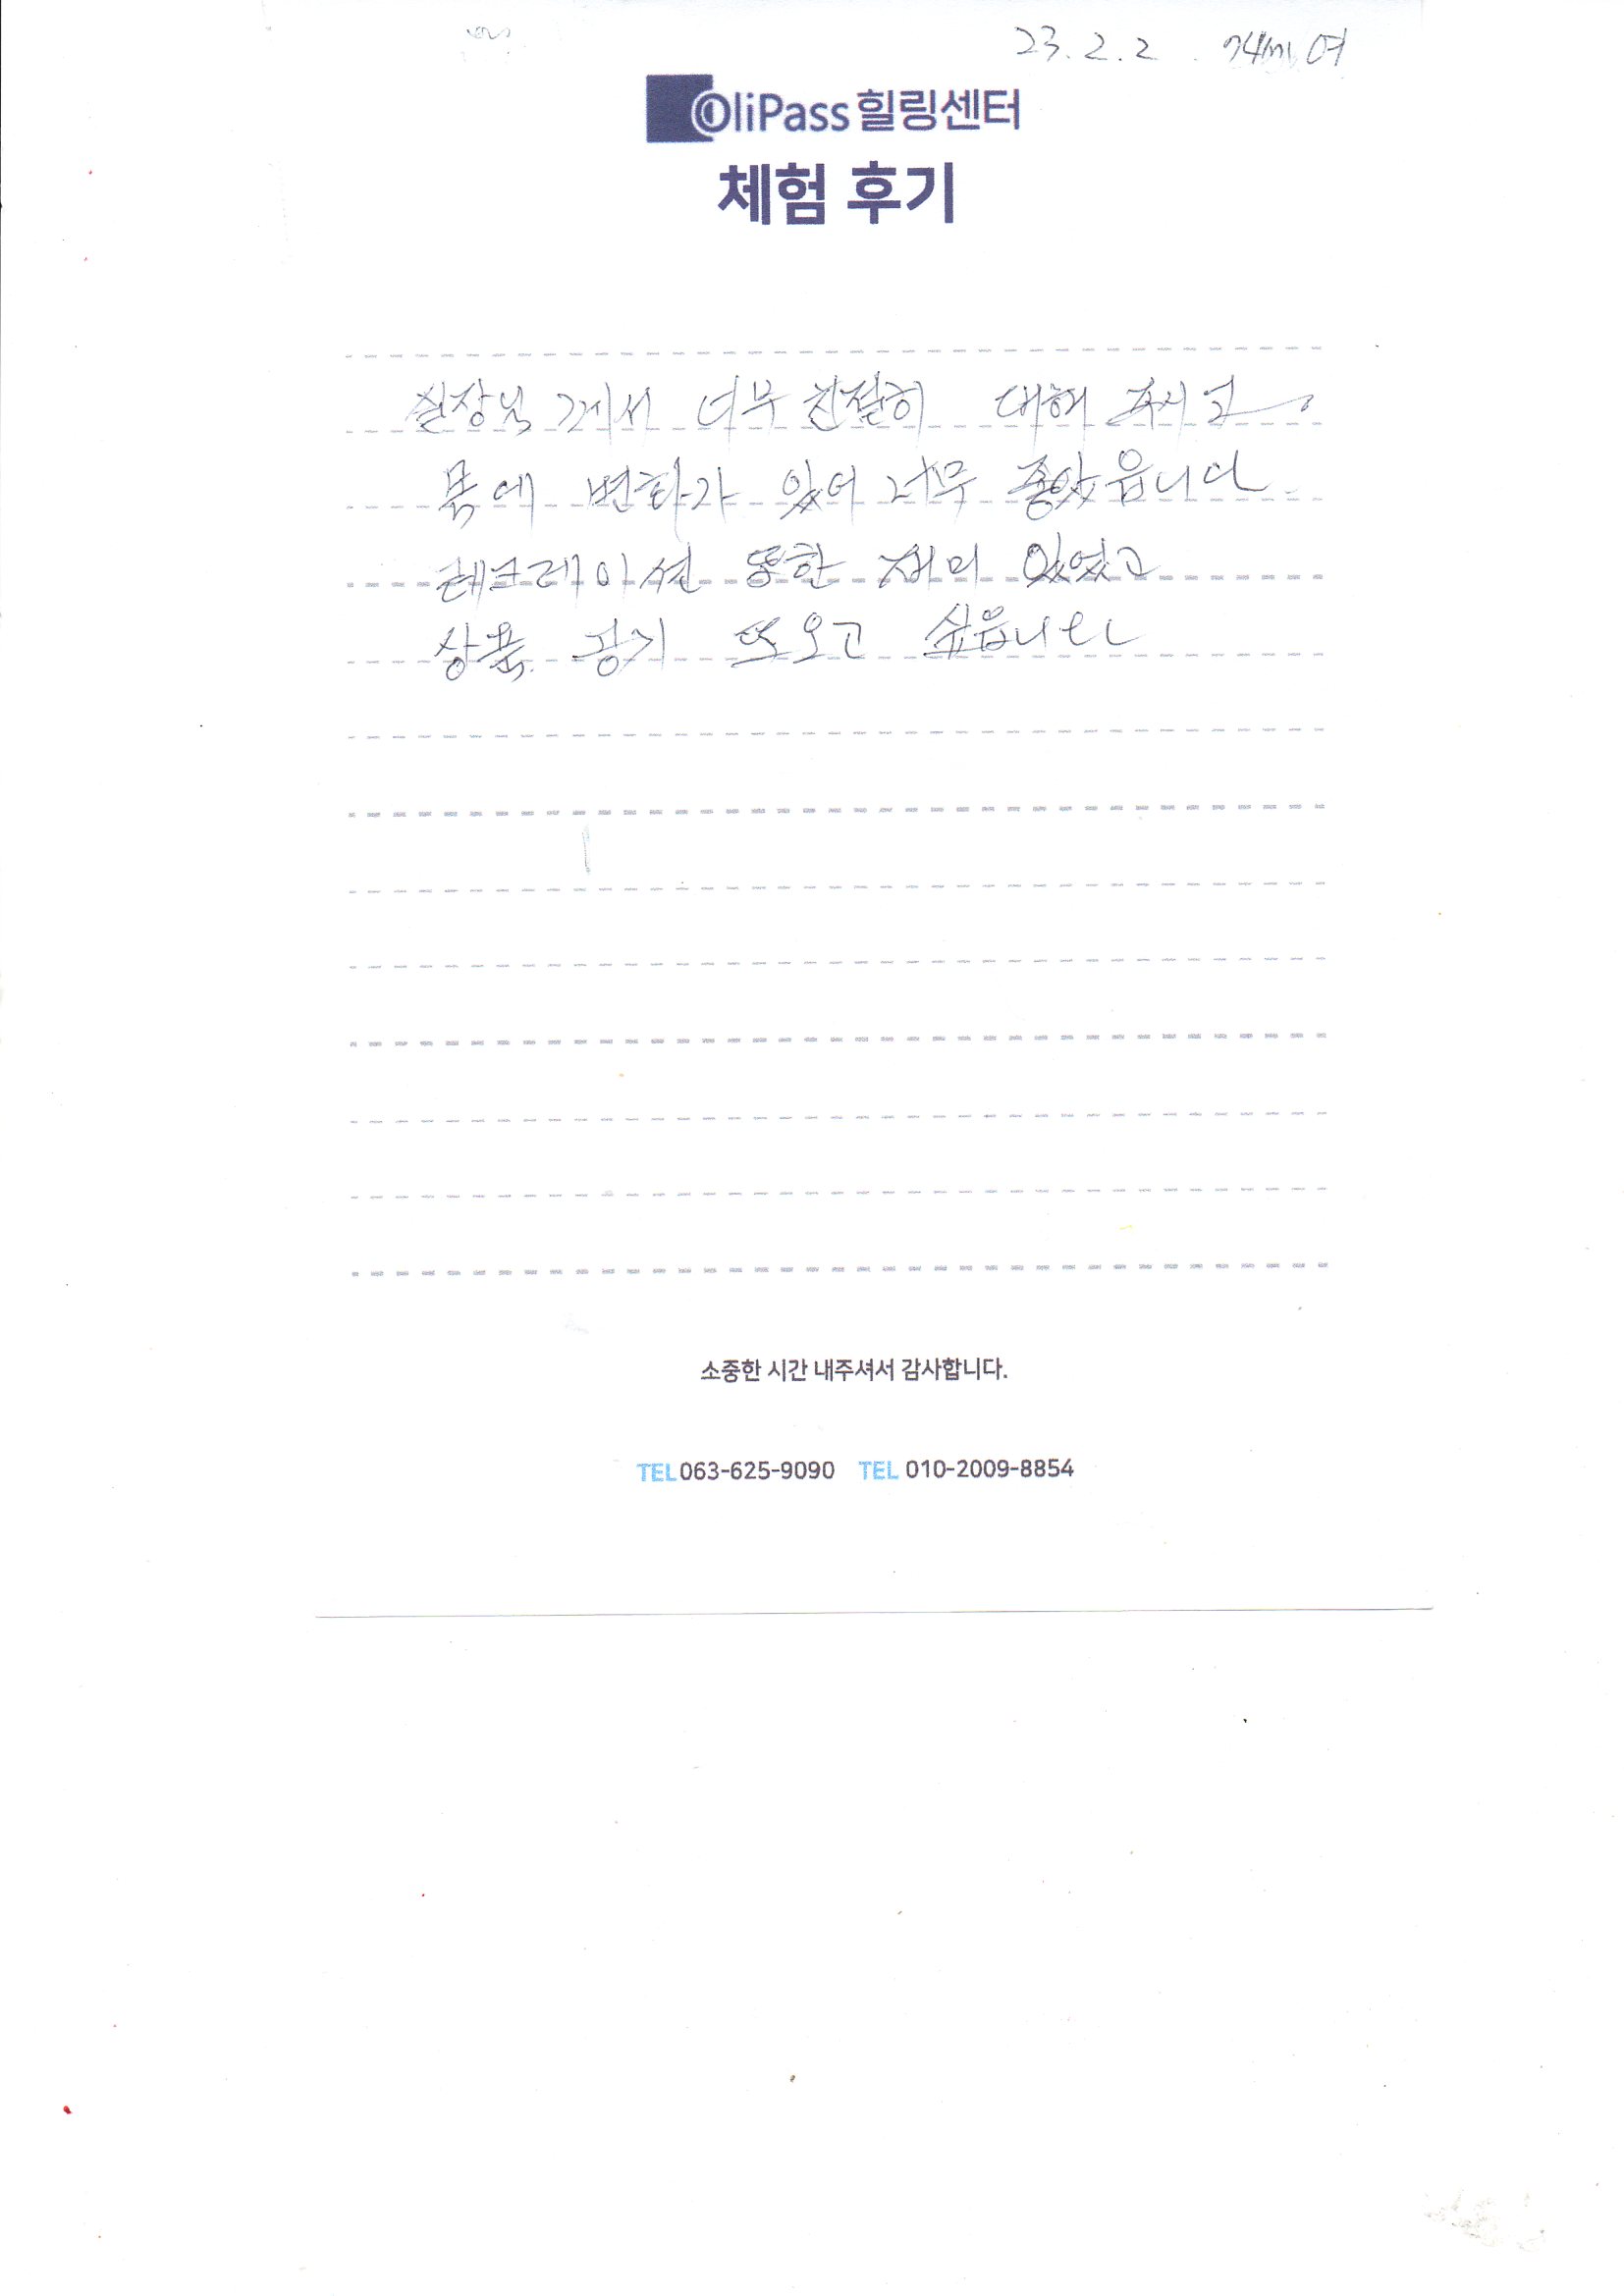 23. 2. 2. 74세 여
OliPass 힐링센터
체험 후기
실장님 께서 너무 친절히 대해 주시고.
몸에 변화가 있어 너무 좋았읍니다.
레크레이션 또한 재미 있었고
상품. 공기 또오고 싶읍니다
소중한 시간 내주셔서 감사합니다.
TEL 063-625-9090 TEL 010-2009-8854